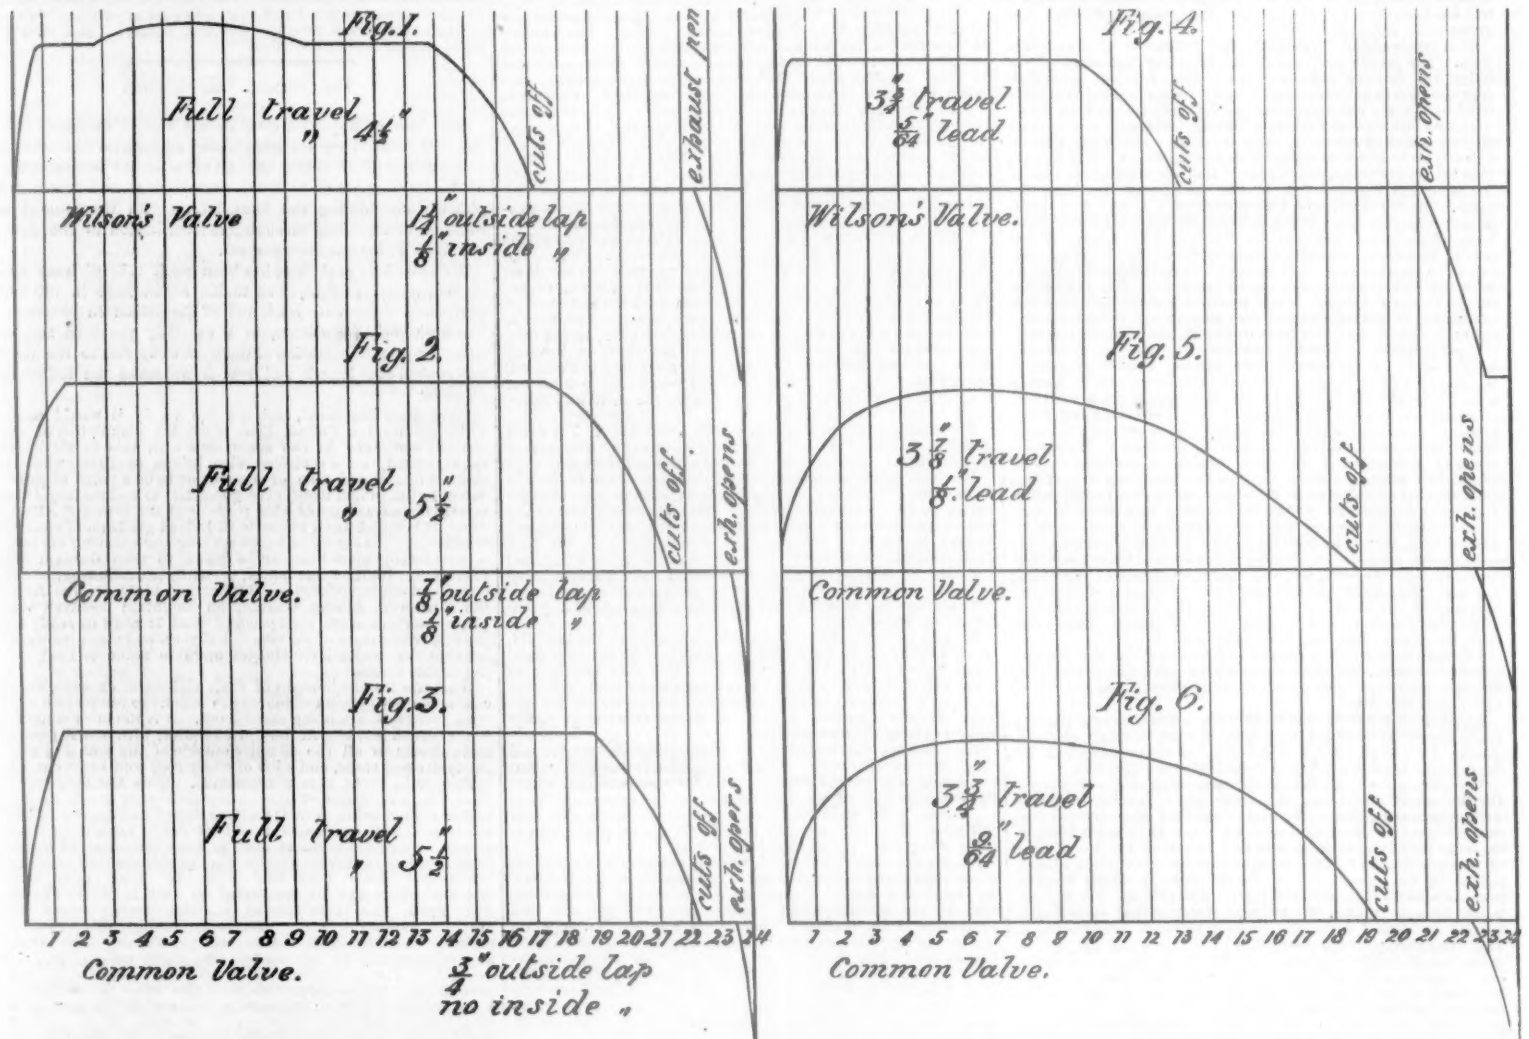 Fig. 1.
Full travel
" 4½"
cuts off
exhaust pen
Wilson's Valve
1¼" outside lap
⅛" inside "
Fig. 2.
Full travel
" 5½"
cuts off
exh. opens
Common Valve.
⅞" outside lap
⅛" inside "
Fig. 3.
Full travel
" 5½"
cuts of
exh. opers
1 2 3 4 5 6 7 8 9 10 11 12 13 14 15 16 17 18 19 20 21 22 23 24
Common Valve.
¾" outside lap
no inside "
Fig. 4.
travel
5/64" lead
cuts off
exh. opens
Wilson's Valve.
Fig. 5.
3⅞" travel
⅛" lead
cuts off
exh. opens
Common Valve.
Fig. 6.
3¾" travel
9/64" lead
cuts off
exh. opens
1 2 3 4 5 6 7 8 9 10 11 12 13 14 15 16 17 18 19 20 21 22 23 24
Common Valve.